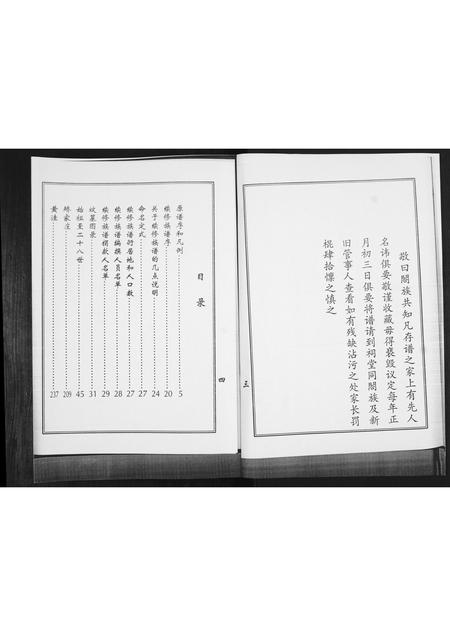 敬曰閤族共知凡存谱之家上有先人
名讳俱要敬谨收藏毋得亵毁议定每年正
月初三日俱要将谱请到祠堂同閤族及新
旧管事人查看如有残缺沾污之处家长罚
棍肆拾慄之慎之
三
目录
原谱序和凡例 5
续修族谱序 20
关于续修族谱的几点说明 24
命名定式 27
续修族谱时居地和人口数 27
续修族谱编撰人员名单 28
续修族谱捐款人名单 29
坟茔图录 31
始祖至二十八世 45
矫家庄 209
黄洼 237
四